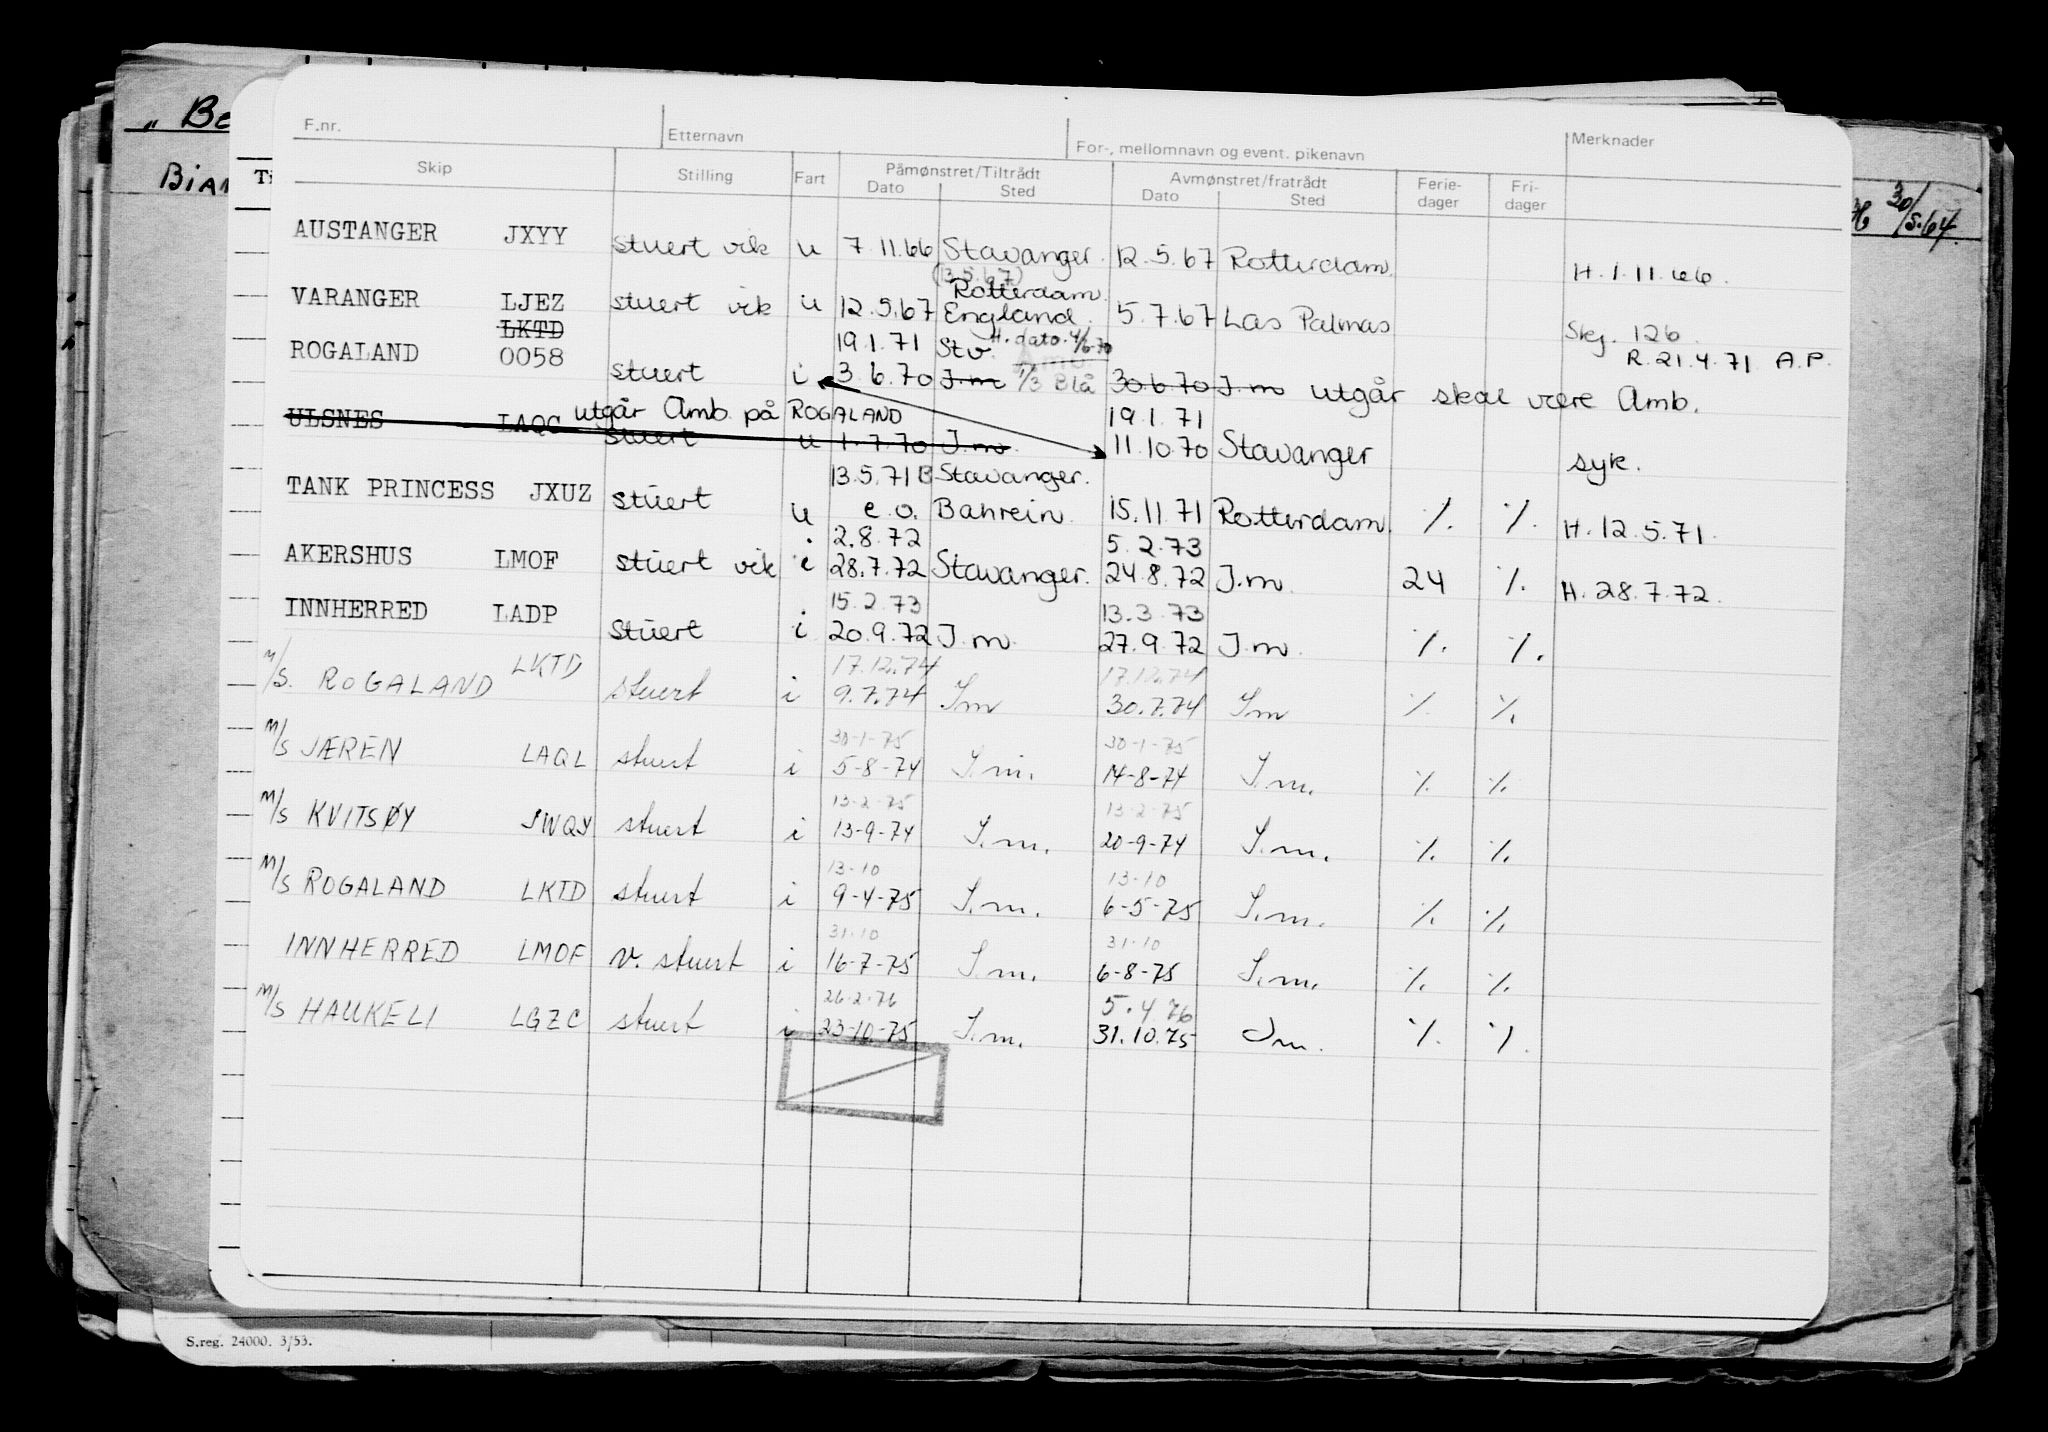 „ Be
Bian
Ti
30/5.64.
F.nr. Etternavn For-, mellomnavn og event. pikenavn Merknader
Skip Stilling Fart Påmønstret/Tiltrådt Avmønstret/fratrådt Ferie- Fri-
Dato Sted Dato Sted dager dager
AUSTANGER JXYY stuert vik u 7.11.66 Stavanger. 12.5.67 Rotterdam. H.1.11.66.
(13.5.67)
Rotterdam.
VARANGER LJEZ stuert vik u 12.5.67 England. 5.7.67 Las Palmas Skj. 126
LKTD 19.1.71 Stv. H. dato. 4/6-70 R.21.4.71 A.P.
ROGALAND 0058 stuert i 3.6.70 I.m 1/3 Blå 30.6.70 I.m utgår skal være Amb.
utgår Amb. på ROGALAND 19.1.71
ULSNES LAQC stuert u 1.7.70 I.m. 11.10.70 Stavanger syk.
13.5.71 B Stavanger.
TANK PRINCESS JXUZ stuert u e.o. Bahrein. 15.11.71 Rotterdam. ٪. ٪. H.12.5.71.
2.8.72 5.2.73
AKERSHUS LMOF stuert vik i 28.7.72 Stavanger. 24.8.72 I.m. 24 ٪. H.28.7.72.
15.2.73 13.3.73
INNHERRED LADP stuert i 20.9.72 I.m. 27.9.72 I.m. ٪. ٪.
17.12.74 17.12.74
M/S. ROGALAND LKTD stuert i 9.7.74 Im 30.7.74 Im ٪. ٪.
30-1-75 30-1-75
M/S JÆREN LAQL stuert i 5-8-74 I.m. 14-8-74 I.m. ٪. ٪.
13-2-75 13-2-75
M/S KVITSØY JWQY stuert i 13-9-74 I.m. 20-9-74 I.m. ٪. ٪.
13-10 13-10
M/S ROGALAND LKTD stuert i 9-4-75 I.m. 6-5-75 I.m. ٪. ٪.
31.10 31.10
INNHERRED LMOF v. stuert i 16-7-75 I.m. 6-8-75 I.m. ٪. ٪.
26.2.76 5.4.76
M/S HAUKELI LGZC stuert i 23-10-75 I.m. 31.10.75 Im. ٪. ٪.
S.reg. 24000. 3/53.